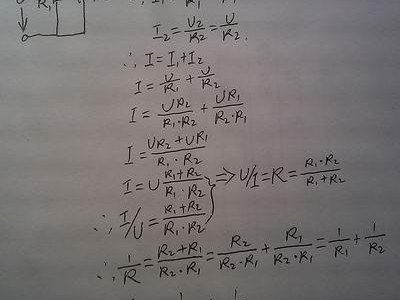 R₁
I₂=U₂/R₂=U/R₂.
∴ I=I₁+I₂
I=U/R₁+U/R₂
I=UR₂/R₁·R₂+UR₁/R₂·R₁
I=UR₂+UR₁/R₁·R₂
I=U R₁+R₂/R₁·R₂ ⇒U/I=R=R₁·R₂/R₁+R₂
∴ I/U=R₁+R₂/R₁·R₂
∴ 1/R=R₂+R₁/R₂·R₁=R₂/R₂·R₁+R₁/R₂·R₁=1/R₁+1/R₂